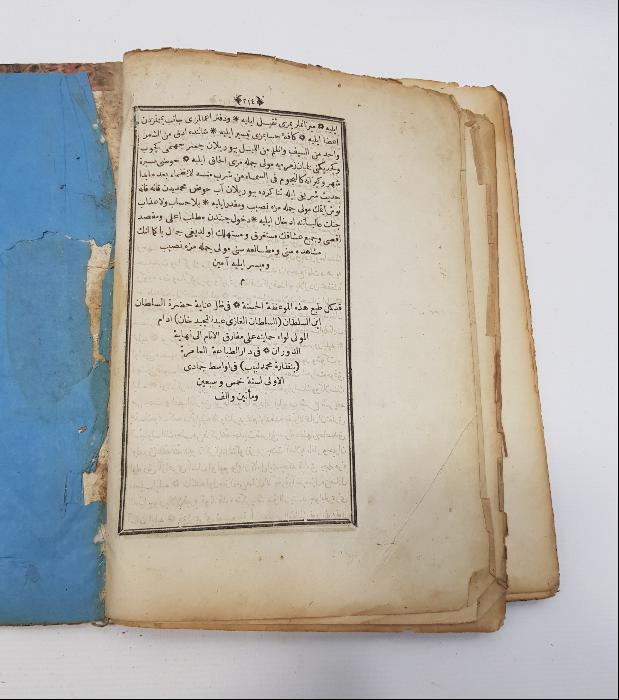 ﴿٢١٤﴾
ايليه * ميزانلر يمزى ثقيل ايليه * ودفتر اعمالمزى يمزدن
اعطا ايليه * كافه حسابمزى يسير ايليه * شاننده ادق من الشعر
واحد من السيف واظلم من الليل بيوريلان جسر جهنمى
مولى جمله مزى الحاق ايليه * حوضى مسيرة
شهر وكيزانه كالنجوم فى السماء من شرب منه لايظمأ بعده دايما
حديث شريفى ايله ثنا كرده بيوريلان آب حوض محمديدن قانه قانه
نوش ايتمك مولى جمله مزه نصيب ومقدر ايليه * بلا حساب ولا عذاب
جنات عاليه ادخال ايليه * دخول جنتدن مطلب اعلى ومقصد
اقصى وجميع عشاقك مستغرق ومستهلك اولديغى جمال با كمالنك
مشاهده سنى ومطالعه سنى مولى جمله مزه نصيب
وميسر ايليه آمين
م
قد كمل طبع هذه الموعظة الحسنة * فى ظل عناية حضرة السلطان
ابن السلطان (السلطان الغازى عبد المجيد خان) ادام
المولى لواء حمايته على مفارق الانام الى نهاية
الدوران * فى دار الطباعة العامرة
(بنظارة محمد لبيب) فى اواسط جمادى
الاولى لسنة خمس وسبعين
ومأتين والف